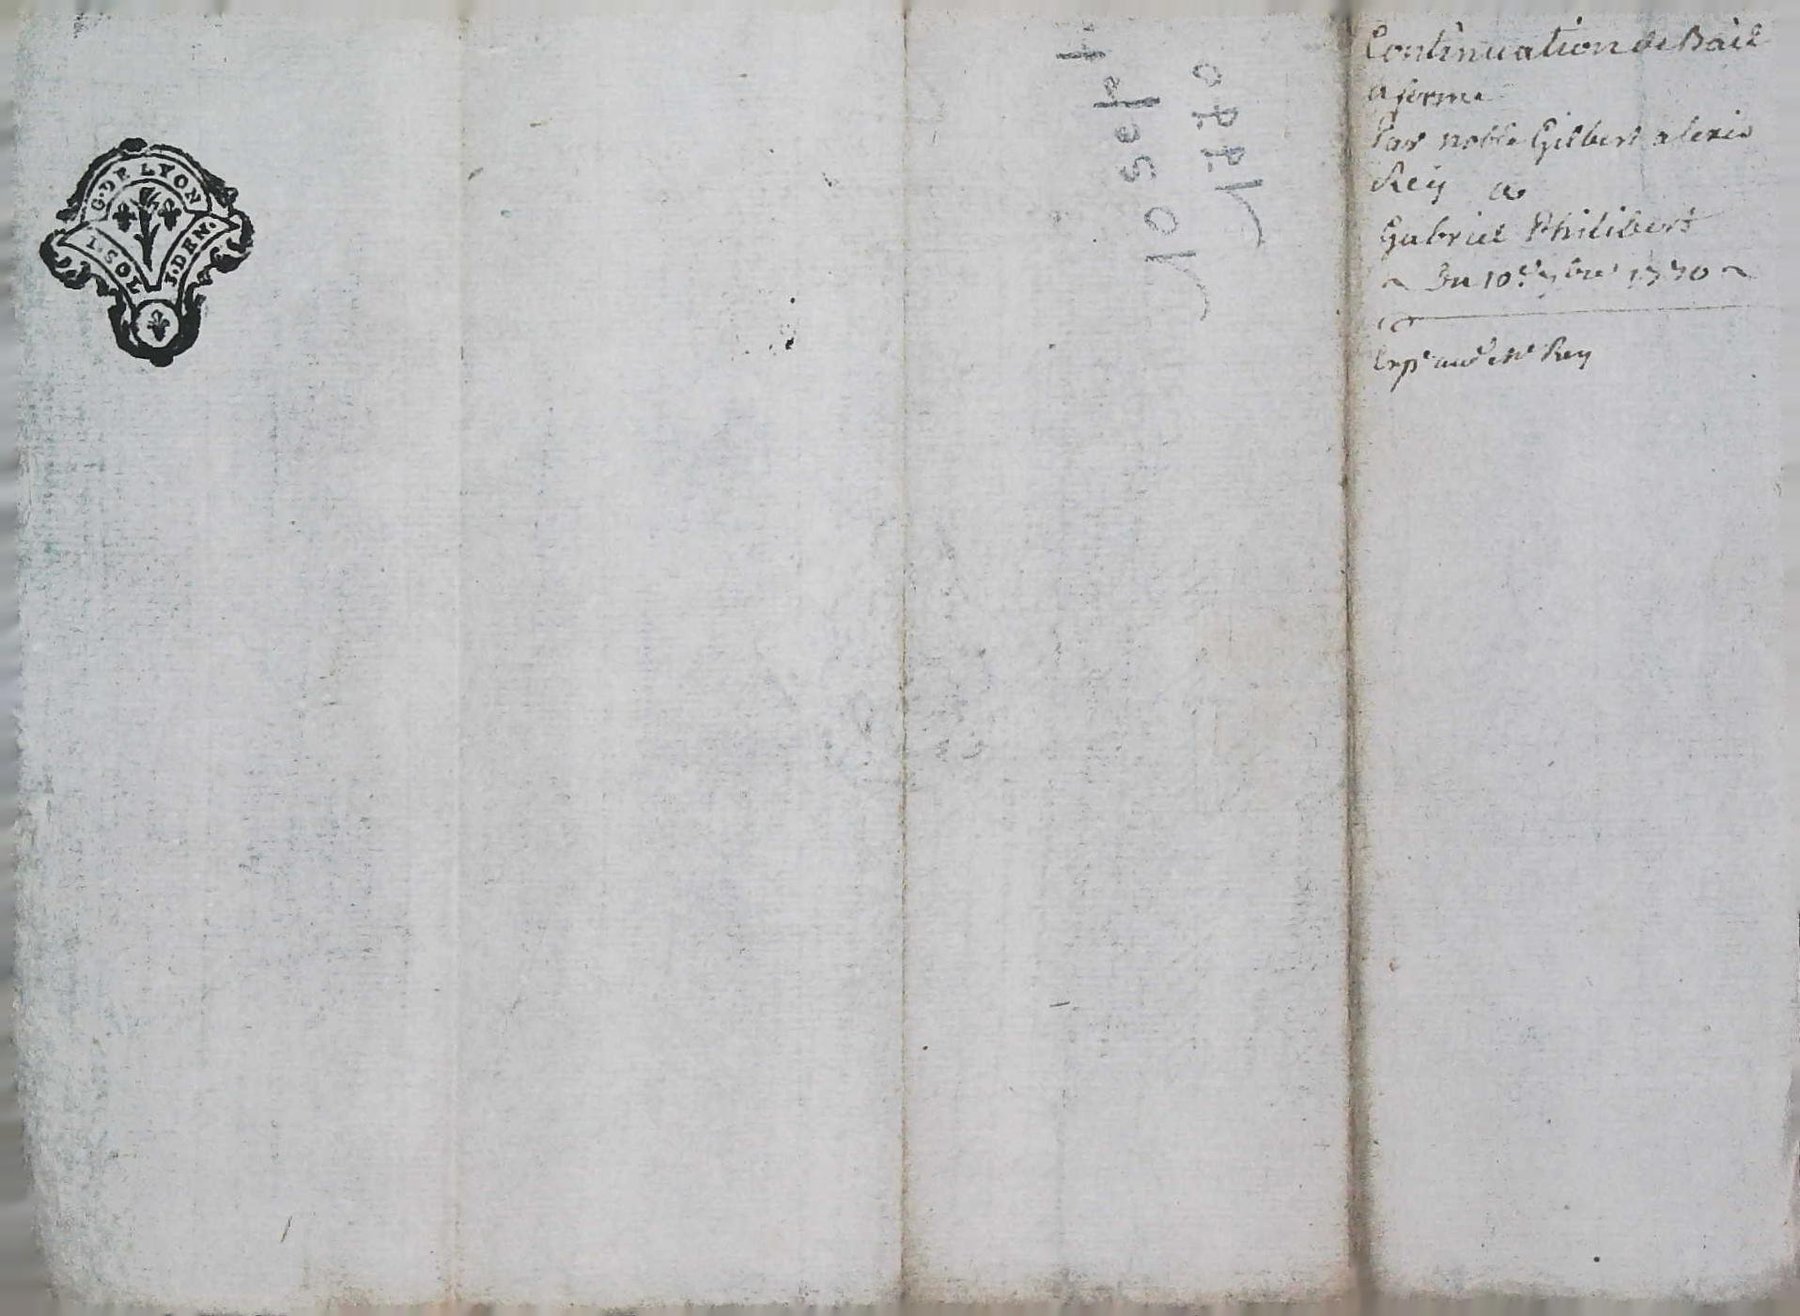 G. DE LYON
1. SOL
3. DEN.
10 sept
1770
Continuation de Bail
a ferme
Par noble Gilbert alexis
Rey a
Gabriel Philibert
~ Du 10e 7bre 1770 ~
Expe aud. Mr Rey